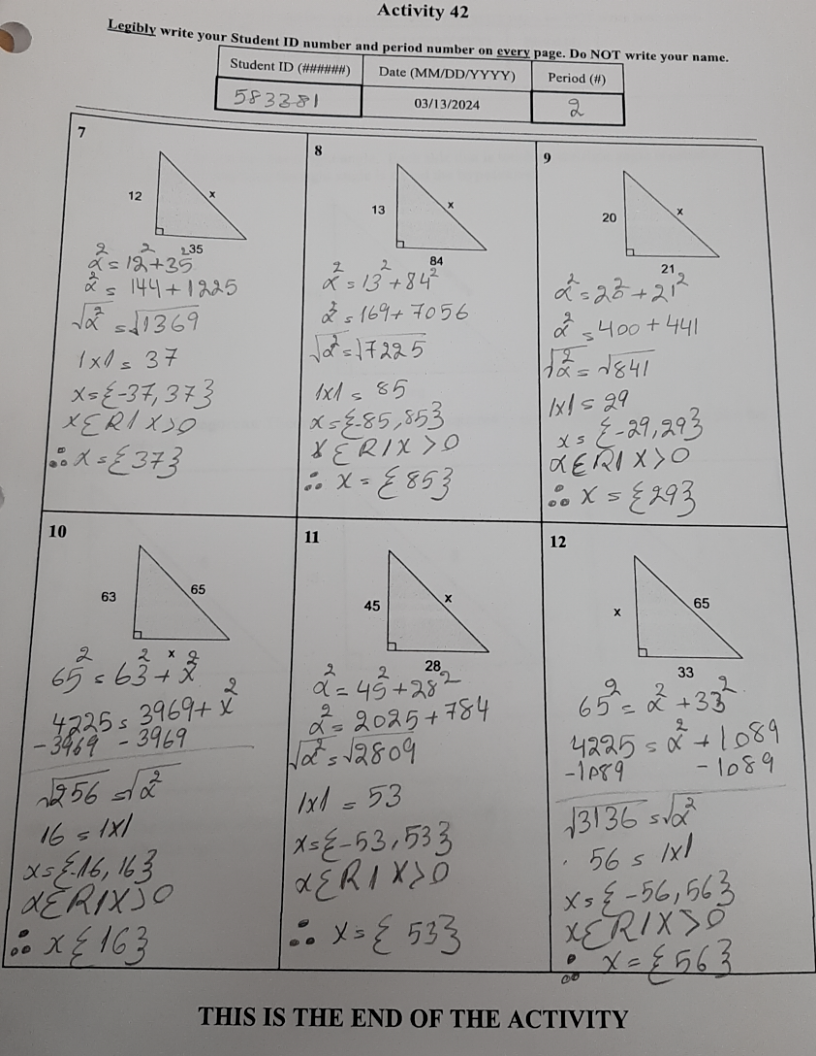 Activity 42
Legibly write your Student ID number and period number on every page. Do NOT write your name.
Student ID (######) Date (MM/DD/YYYY) Period (#)
583381 03/13/2024 2
7
12
x
35
x² = 12² + 35²
x² = 144 + 1225
√x² = √1369
|x| = 37
x = {-37, 37}
x ∈ R | x > 0
∴ x = {37}
8
13
x
84
x² = 13² + 84²
x² = 169 + 7056
√x² = √7225
|x| = 85
x = {-85, 85}
x ∈ R | x > 0
∴ x = {85}
9
20
x
21
x² = 20² + 21²
x² = 400 + 441
√x² = √841
|x| = 29
x = {-29, 29}
x ∈ R | x > 0
∴ x = {29}
10
63
65
x
65² = 63² + x²
4225 = 3969 + x²
-3969 -3969
√256 = √x²
16 = |x|
x = {-16, 16}
x ∈ R | x > 0
∴ x {16}
11
45
x
28
x² = 45² + 28²
x² = 2025 + 784
√x² = √2809
|x| = 53
x = {-53, 53}
x ∈ R | x > 0
∴ x = {53}
12
x
65
33
65² = x² + 33²
4225 = x² + 1089
-1089 -1089
√3136 = √x²
56 = |x|
x = {-56, 56}
x ∈ R | x > 0
∴ x = {56}
THIS IS THE END OF THE ACTIVITY